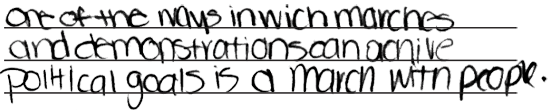 one of the ways in wich marches
and demonstrations can achive
political goals is a march with people.